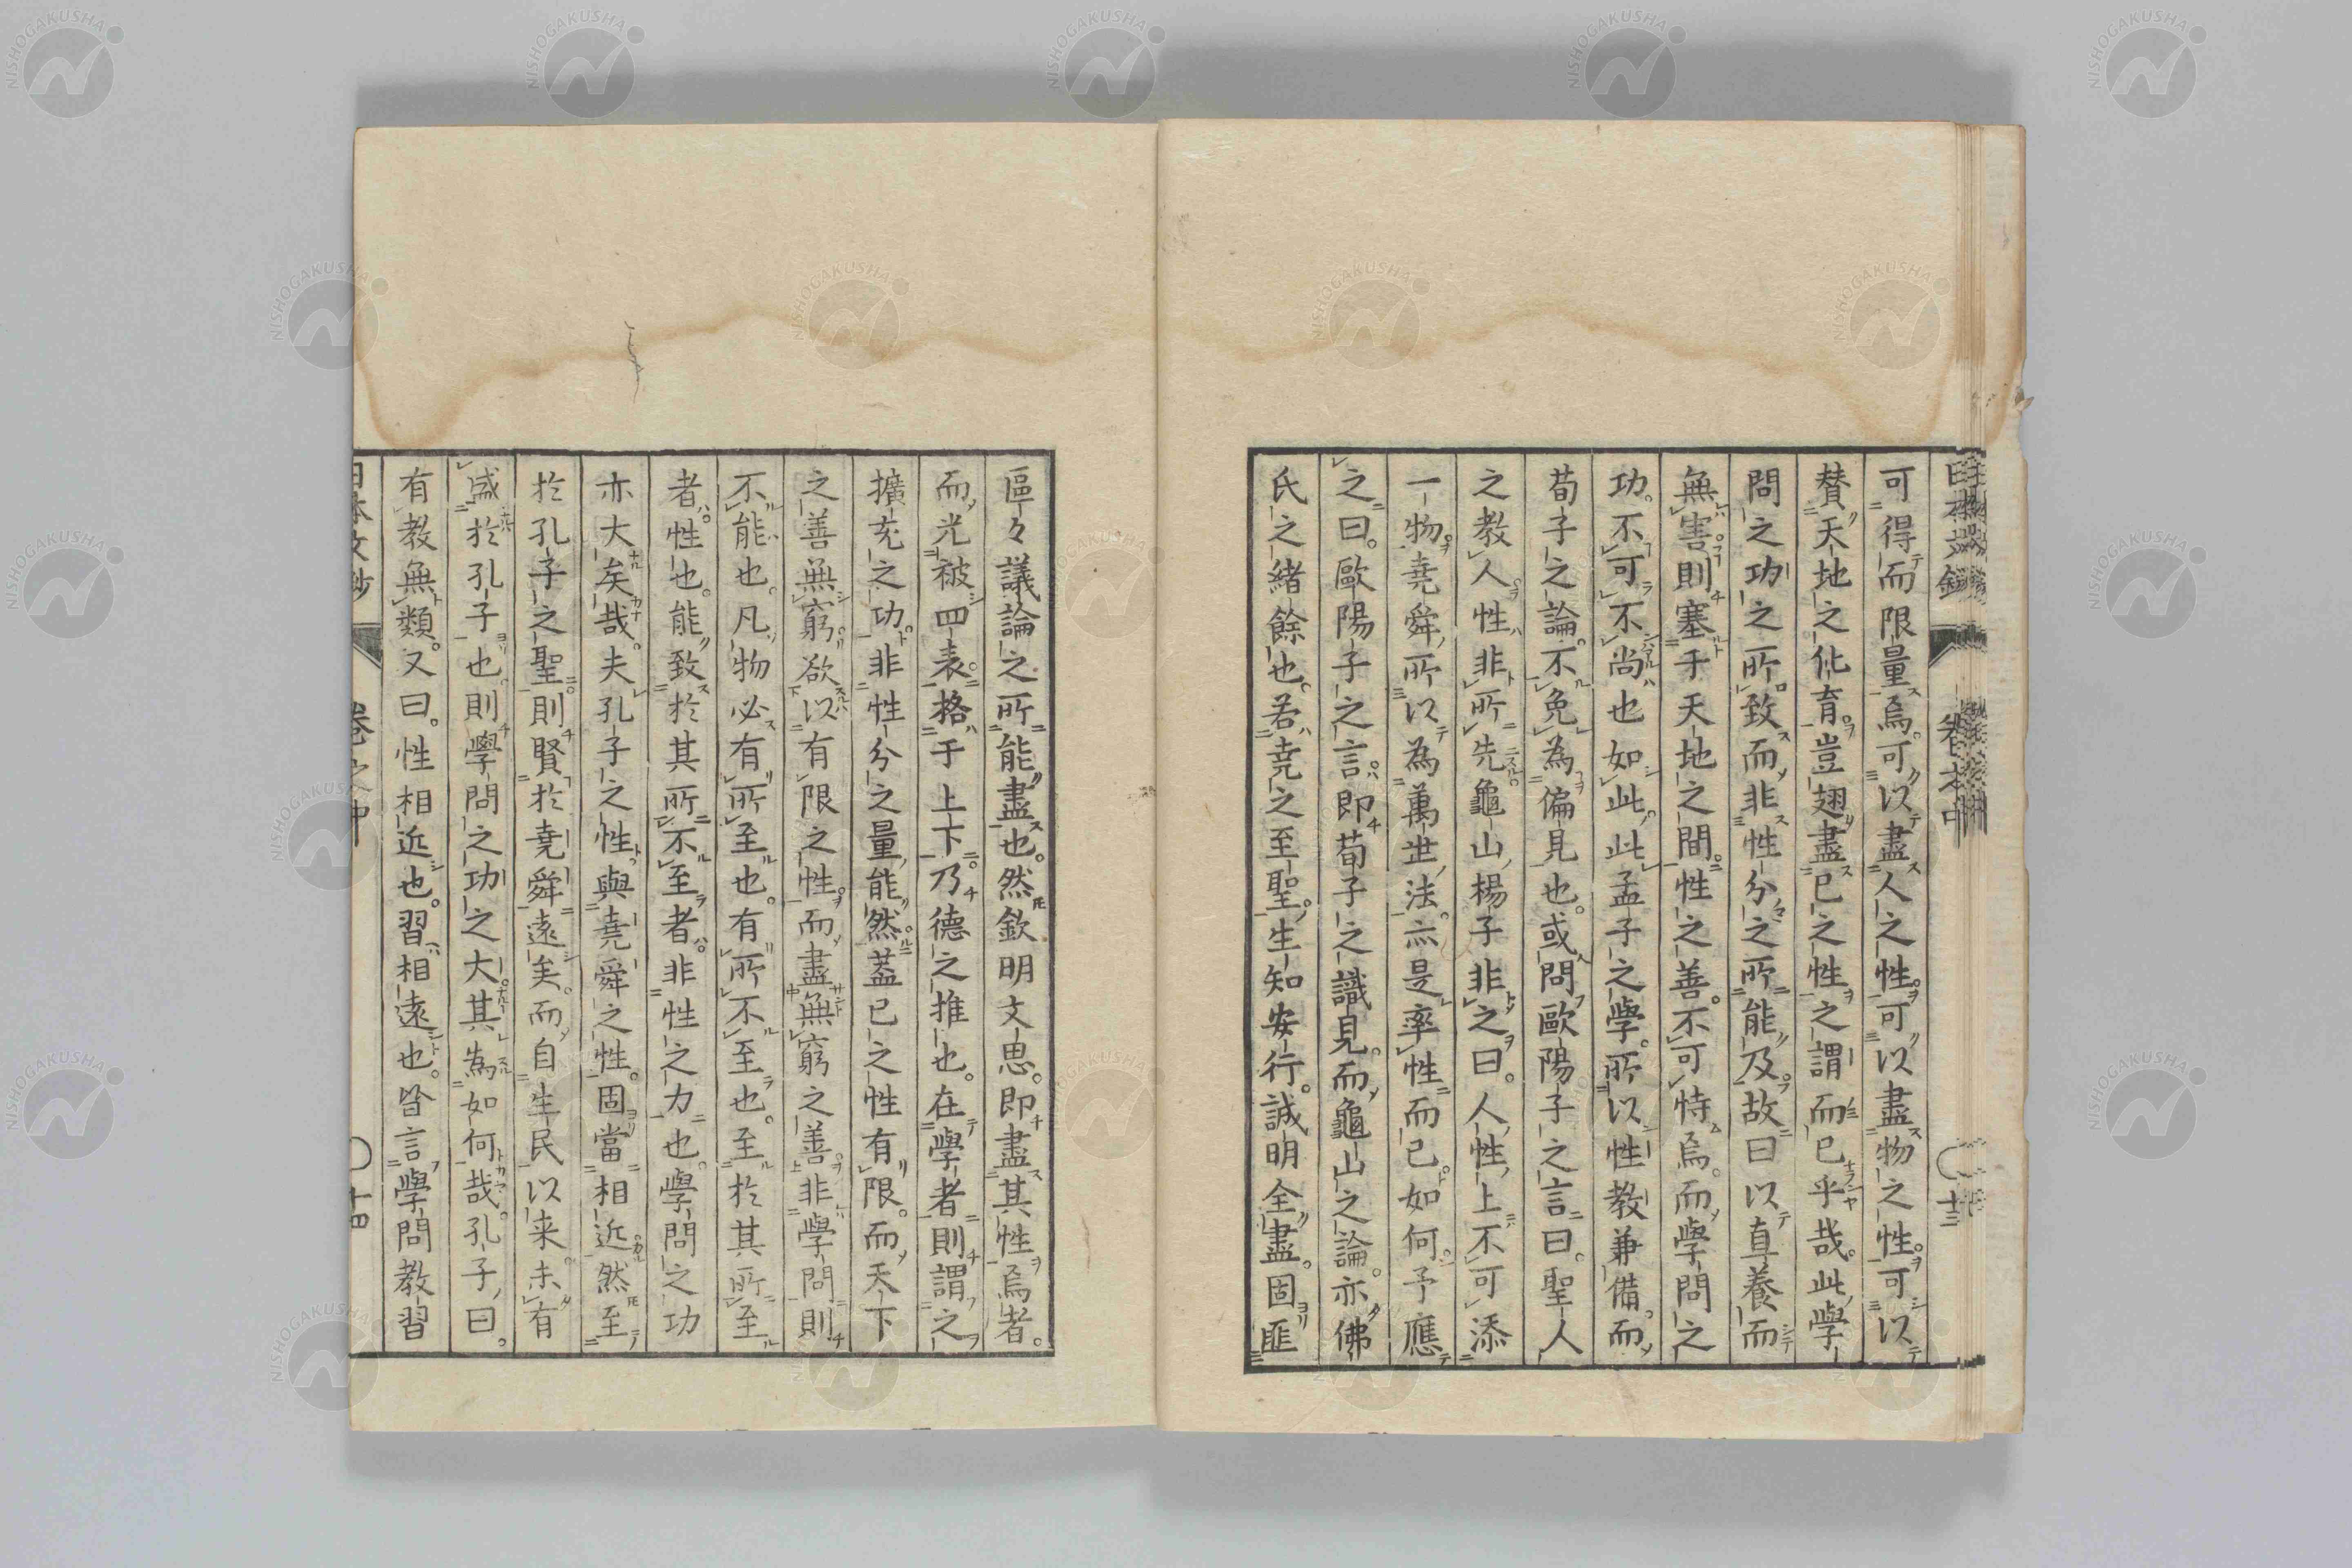 可得而限量焉。可以盡人之性。可以盡物之性。可以
賛天地之化育。豈翅盡已之性之謂而已乎哉。此學
問之功之所致而非性分之所能及。故曰以直養而
無害。則塞乎天地之間。性之善。不可恃焉。而學問之
功。不可不尚也如此。此孟子之學。所以性教兼備。而
荀子之論。不免為偏見也。或問歐陽子之言曰。聖人
之教人。性非所先。龜山楊子非之曰。人性上不可添
一物。堯舜所以為萬世法。亦是率性而已。如何。予應
之曰。歐陽子之言。即荀子之識見。而龜山之論。亦佛
氏之緒餘也。若堯之至聖。生知安行。誠明全盡。固匪
區々議論之所能盡也。然欽明文思。即盡其性焉者。
而光被四表。格于上下。乃德之推也。在學者則謂之
擴充之功。非性分之量能然。蓋已之性有限。而天下
之善無窮。欲以有限之性。而盡無窮之善。非學問則
不能也。凡物必有所至也。有所不至也。至於其所至
者。性也。能致於其所不至者。非性之力也。學問之功
亦大矣哉。夫孔子之性。與堯舜之性。固當相近。然至
於孔子之聖。則賢於堯舜遠矣。而自生民以来。未有
盛於孔子也。則學問之功之大。其為如何哉。孔子曰。
有教無類。又曰。性相近也。習相遠也。皆言學問教習
卷之中
十四
NISHOGAKUSHA